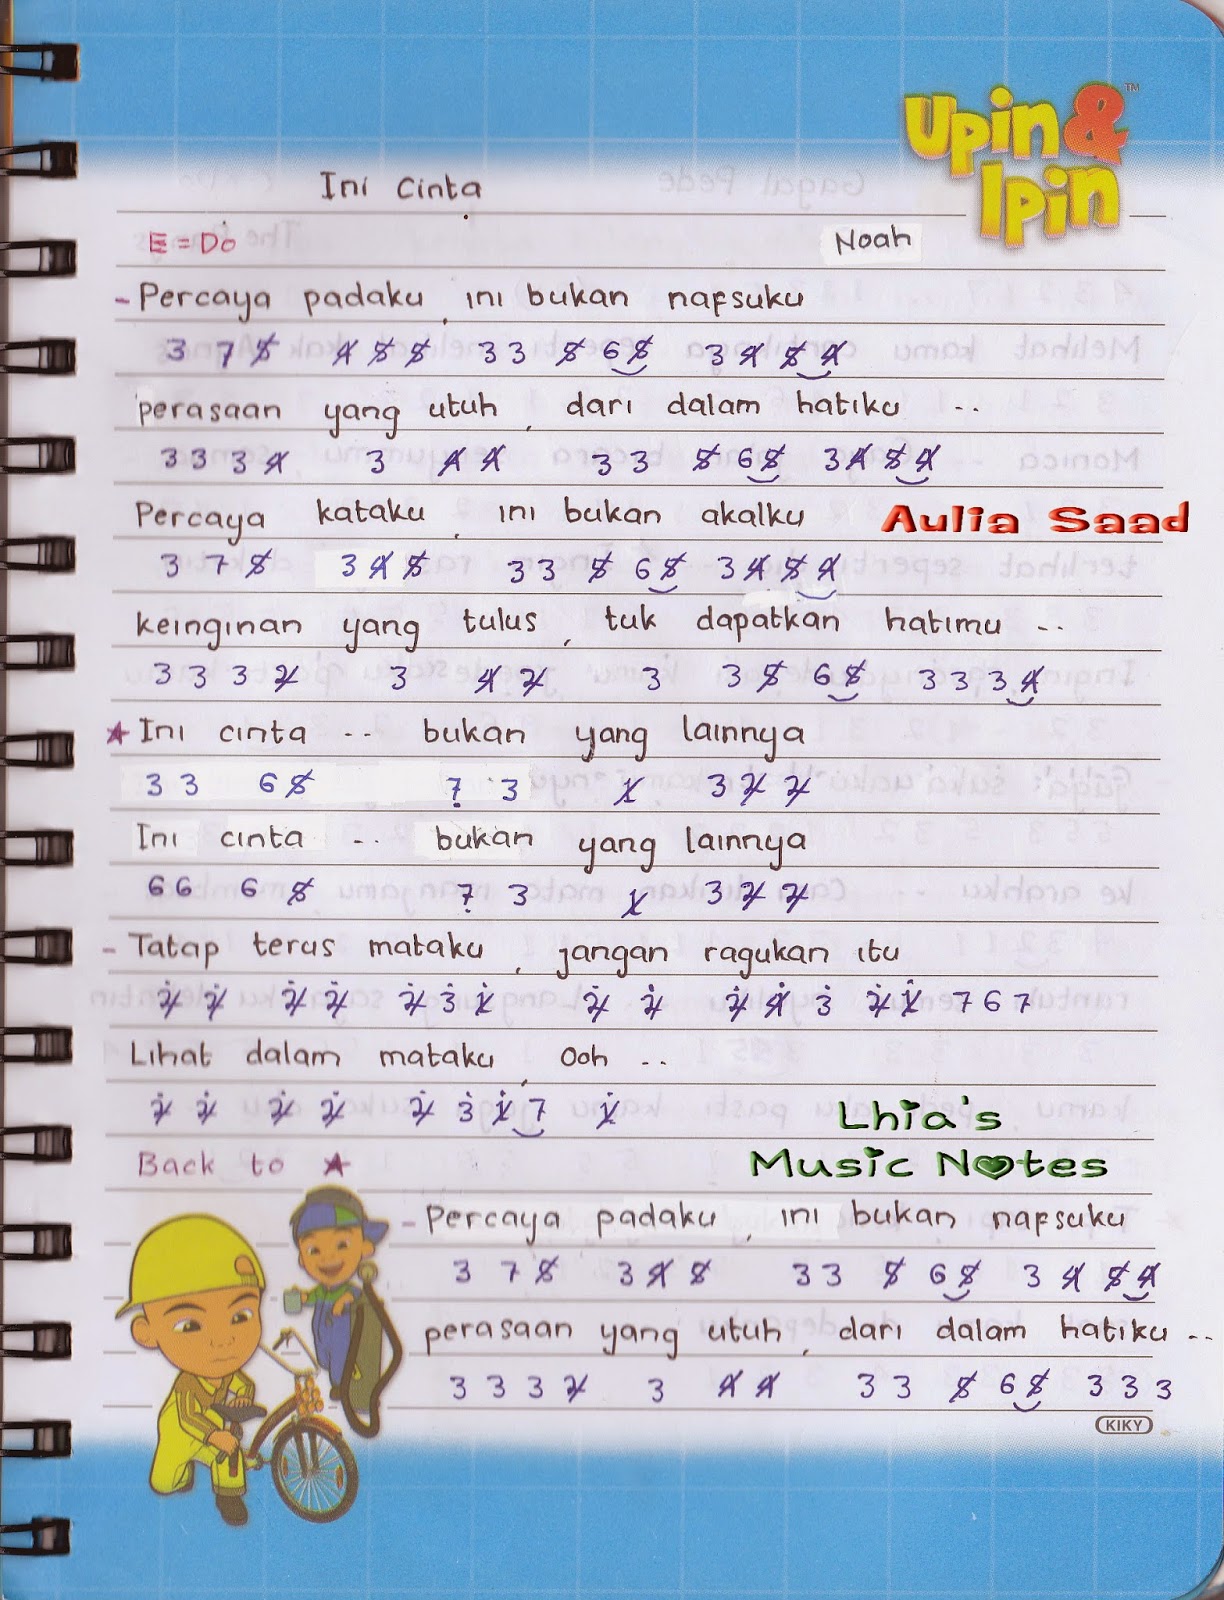 Upin & Ipin™
Ini Cinta
E = Do
Noah
- Percaya padaku, ini bukan nafsuku
3 7 5̸ 4̸ 5̸ 5̸ 3 3 5̸ 6 5̸ 3 4̸ 5̸ 4̸
perasaan yang utuh, dari dalam hatiku ..
3 3 3 4̸ 3 4̸ 4̸ 3 3 5̸ 6 5̸ 3 4̸ 5̸ 4̸
Percaya kataku, ini bukan akalku
Aulia Saad
3 7 5̸ 3 4̸ 5̸ 3 3 5̸ 6 5̸ 3 4̸ 5̸ 4̸
keinginan yang tulus, tuk dapatkan hatimu ..
3 3 3 2̸ 3 4̸ 2̸ 3 3 5̸ 6 5̸ 3 3 3 4̸
★ Ini cinta .. bukan yang lainnya
3 3 6 5̸ 7̣ 3 1̸ 3 2̸ 2̸
Ini cinta .. bukan yang lainnya
6 6 6 5̸ 7̣ 3 1̸ 3 2̸ 2̸
- Tatap terus mataku, jangan ragukan itu
2̸̇ 2̸̇ 2̸̇ 2̸̇ 2̸̇ 3̇ 1̸̇ 2̸̇ 2̸̇ 2̸̇ 4̸̇ 3̇ 2̸̇ 1̸̇ 7 6 7
Lihat dalam mataku, Ooh ..
2̸̇ 2̸̇ 2̸̇ 2̸̇ 2̸̇ 3̇ 1̸̇ 7 1̸̇
Lhia's
Music Notes
Back to ★
- Percaya padaku, ini bukan nafsuku
3 7 5̸ 3 4̸ 5̸ 3 3 5̸ 6 5̸ 3 4̸ 5̸ 4̸
perasaan yang utuh, dari dalam hatiku ..
3 3 3 2̸ 3 4̸ 4̸ 3 3 5̸ 6 5̸ 3 3 3
KIKY